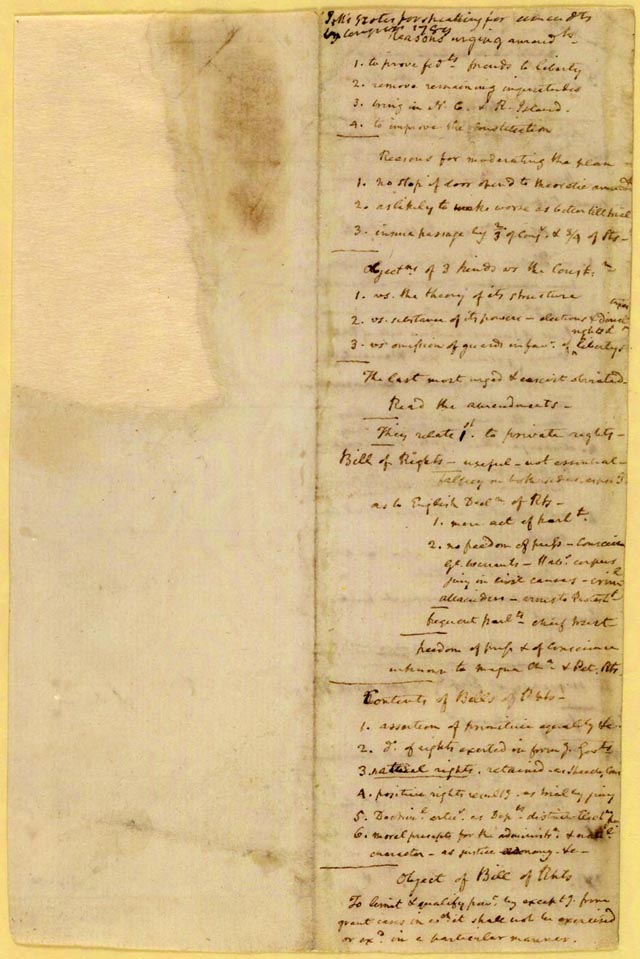 Notes for speaking for amendts
by Congress 1789
Reasons urging amendts.
1. to prove fedts friends to liberty
2. remove remaining inquietudes
3. bring in N. C. & R. Island.
4. to improve the Constitution
Reasons for moderating the plan
1. no stop if door opend to theoretic amendts
2. as likely to make worse as better till tried
3. insure passage by 2/3 of Congs. & 3/4 of Sts—
Objectns. of 3 kinds vs the Constn.
1. vs. the theory of its structure
2. vs. substance of its powers — elections & direct
3. vs omission of guards in favr. of rights & liberty
The last most urged & easiest obviated.
Read the amendments—
They relate 1st. to private rights—
Bill of Rights — useful — not essential—
fallacy on both sides
as to English Decln. of Rts—
1. mere act of parlt.
2. no freedom of press — Conscience
Gl. Warrants — Habs. corpus
jury in Civil Causes — criml.
attainders — arms to Protestts.
frequent Parlts. — chief trust
freedom of press & of conscience
unknown to Magna Cha. & Pet. Rts.
Contents of Bills of Rhts—
1. assertion of primitive equality &c—
2. do. of rights exerted in formg. of Govts
3. natural rights. retained. as Speech, Con.
4. positive rights resultg. as trial by jury
5. Doctrinl. artics. as Depts. distinct
6. moral precepts for the administrn. & natl.
character — as justice — economy — &c—
Object of Bill of Rhts
To limit & qualify powr. by exceptg. from
grant cases in wch. it shall not be exercised
or exd. in a particular manner.